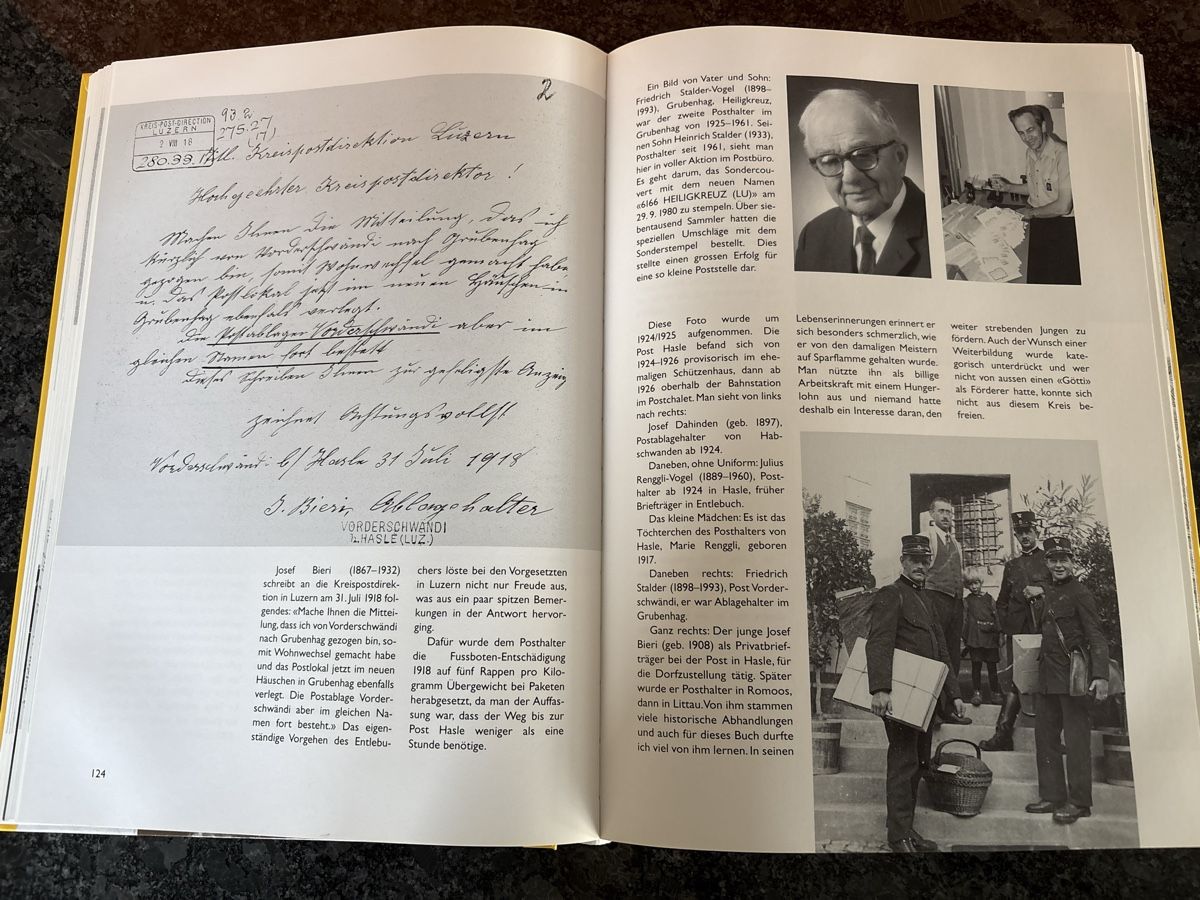 2
93.2
275.27
KREIS-POST-DIRECTION
LUZERN
2 VIII 18
280.33.17
Tit. Kreispostdirektion Luzern
Hochgeehrter Kreispostdirektor !
Machen Ihnen die Mitteilung, das ich
kürzlich von Vorderschwandi nach Grubenhag
gezogen bin, somit Wohnwechsel gemacht habe
u. das Postlokal jetz im neuen Häuschen in
Grubenhag ebenfals verlegt.
Die Postablagen Vorderschwändi aber im
gleichen Namen fort besteht
dieses Schreiben Ihnen zur gefeligste Anzeig
zeichnet Achtungsvollst
Vorderschwändi b/ Hasle 31 Juli 1918
J. Bieri, Ablagehalter
VORDERSCHWANDI
b. HASLE (LUZ.)
Josef Bieri (1867–1932)
schreibt an die Kreispostdirek-
tion in Luzern am 31. Juli 1918 fol-
gendes: «Mache Ihnen die Mittei-
lung, dass ich von Vorderschwändi
nach Grubenhag gezogen bin, so-
mit Wohnwechsel gemacht habe
und das Postlokal jetzt im neuen
Häuschen in Grubenhag ebenfalls
verlegt. Die Postablage Vorder-
schwändi aber im gleichen Na-
men fort besteht.» Das eigen-
ständige Vorgehen des Entlebu-
chers löste bei den Vorgesetzten
in Luzern nicht nur Freude aus,
was aus ein paar spitzen Bemer-
kungen in der Antwort hervor-
ging.
Dafür wurde dem Posthalter
die Fussboten-Entschädigung
1918 auf fünf Rappen pro Kilo-
gramm Übergewicht bei Paketen
herabgesetzt, da man der Auffas-
sung war, dass der Weg bis zur
Post Hasle weniger als eine
Stunde benötige.
124
Ein Bild von Vater und Sohn:
Friedrich Stalder-Vogel (1898–
1993), Grubenhag, Heiligkreuz,
war der zweite Posthalter im
Grubenhag von 1925–1961. Sei-
nen Sohn Heinrich Stalder (1933),
Posthalter seit 1961, sieht man
hier in voller Aktion im Postbüro.
Es geht darum, das Sondercou-
vert mit dem neuen Namen
«6166 HEILIGKREUZ (LU)» am
29. 9. 1980 zu stempeln. Über sie-
bentausend Sammler hatten die
speziellen Umschläge mit dem
Sonderstempel bestellt. Dies
stellte einen grossen Erfolg für
eine so kleine Poststelle dar.
Diese Foto wurde um
1924/1925 aufgenommen. Die
Post Hasle befand sich von
1924–1926 provisorisch im ehe-
maligen Schützenhaus, dann ab
1926 oberhalb der Bahnstation
im Postchalet. Man sieht von links
nach rechts:
Josef Dahinden (geb. 1897),
Postablagehalter von Hab-
schwanden ab 1924.
Daneben, ohne Uniform: Julius
Renggli-Vogel (1889–1960), Post-
halter ab 1924 in Hasle, früher
Briefträger in Entlebuch.
Das kleine Mädchen: Es ist das
Töchterchen des Posthalters von
Hasle, Marie Renggli, geboren
1917.
Daneben rechts: Friedrich
Stalder (1898–1993), Post Vorder-
schwändi, er war Ablagehalter im
Grubenhag.
Ganz rechts: Der junge Josef
Bieri (geb. 1908) als Privatbrief-
träger bei der Post in Hasle, für
die Dorfzustellung tätig. Später
wurde er Posthalter in Romoos,
dann in Littau. Von ihm stammen
viele historische Abhandlungen
und auch für dieses Buch durfte
ich viel von ihm lernen. In seinen
Lebenserinnerungen erinnert er
sich besonders schmerzlich, wie
er von den damaligen Meistern
auf Sparflamme gehalten wurde.
Man nützte ihn als billige
Arbeitskraft mit einem Hunger-
lohn aus und niemand hatte
deshalb ein Interesse daran, den
weiter strebenden Jungen zu
fördern. Auch der Wunsch einer
Weiterbildung wurde kate-
gorisch unterdrückt und wer
nicht von aussen einen «Götti»
als Förderer hatte, konnte sich
nicht aus diesem Kreis be-
freien.